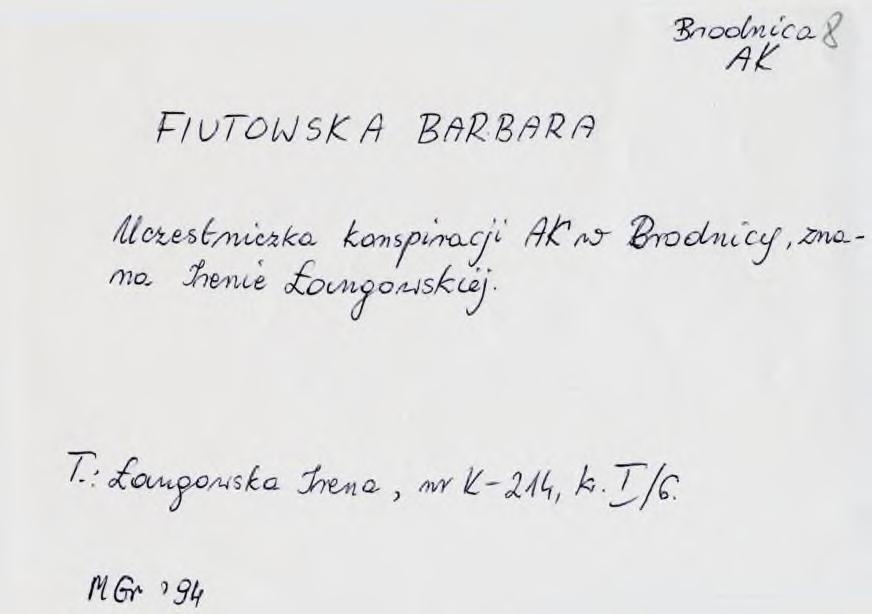 Brodnica 8
AK
FIUTOWSKA BARBARA
Uczestniczka konspiracji AK w Brodnicy, zna-
na Irenie Łangowskiej.
T.: Łangowska Irena, nr K-214, k. I/6.
MGr '94